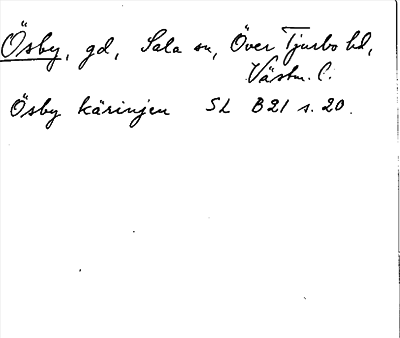 Ösby, gd, Sala sn, Över Tjurbo hd,
Västm. l.
Ösby käringen SL B21 s. 20.